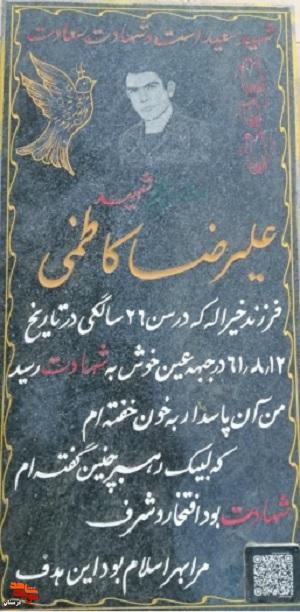 شهید سعید است و شهادت سعادت
شهید
علیرضا کاظمی
فرزند خیراله که در سن ۲۶ سالگی در تاریخ
۶۱٫۸٫۱۲ در جبهه عین خوش به شهادت رسید
من آن پاسدار به خون خفته ام
که لبیک رهبر چنین گفته ام
شهادت بود افتخار و شرف
مرا بهر اسلام بود این هدف